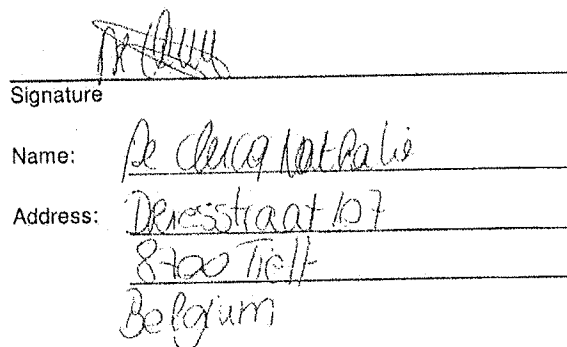 Signature
Name: De clercq Nathalie
Address: Deinsestraat 107
8700 Tielt
Belgium